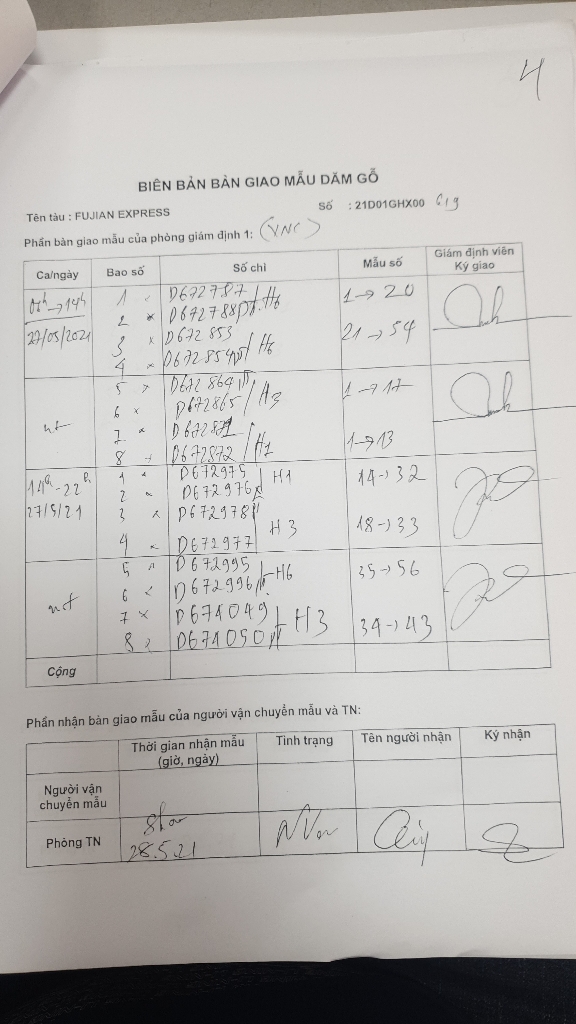 4
BIÊN BẢN BÀN GIAO MẪU DĂM GỖ
Tên tàu : FUJIAN EXPRESS
Số : 21D01GHX00 619
Phần bàn giao mẫu của phòng giám định 1: (VNC)
Ca/ngày Bao số Số chì Mẫu số Giám định viên Ký giao
27/05/2021
1 D672787
2 D672788 H6 1→20
3 D672853
4 D672854 H6 21→54
nt
5 D672864
6 D672865 H3 1→17
7 D672871
8 D672872 H1 1→13
14h-22h
27/5/21
1 D672975
2 D672976 H1 14→32
3 D672978
4 D672977 H3 18→33
nt
5 D672995
6 D672996 H6 35→56
7 D671049
8 D671050 H3 34→43
Cộng
Phần nhận bàn giao mẫu của người vận chuyển mẫu và TN:
Thời gian nhận mẫu (giờ, ngày) Tình trạng Tên người nhận Ký nhận
Người vận chuyển mẫu
Phòng TN
28.5.21